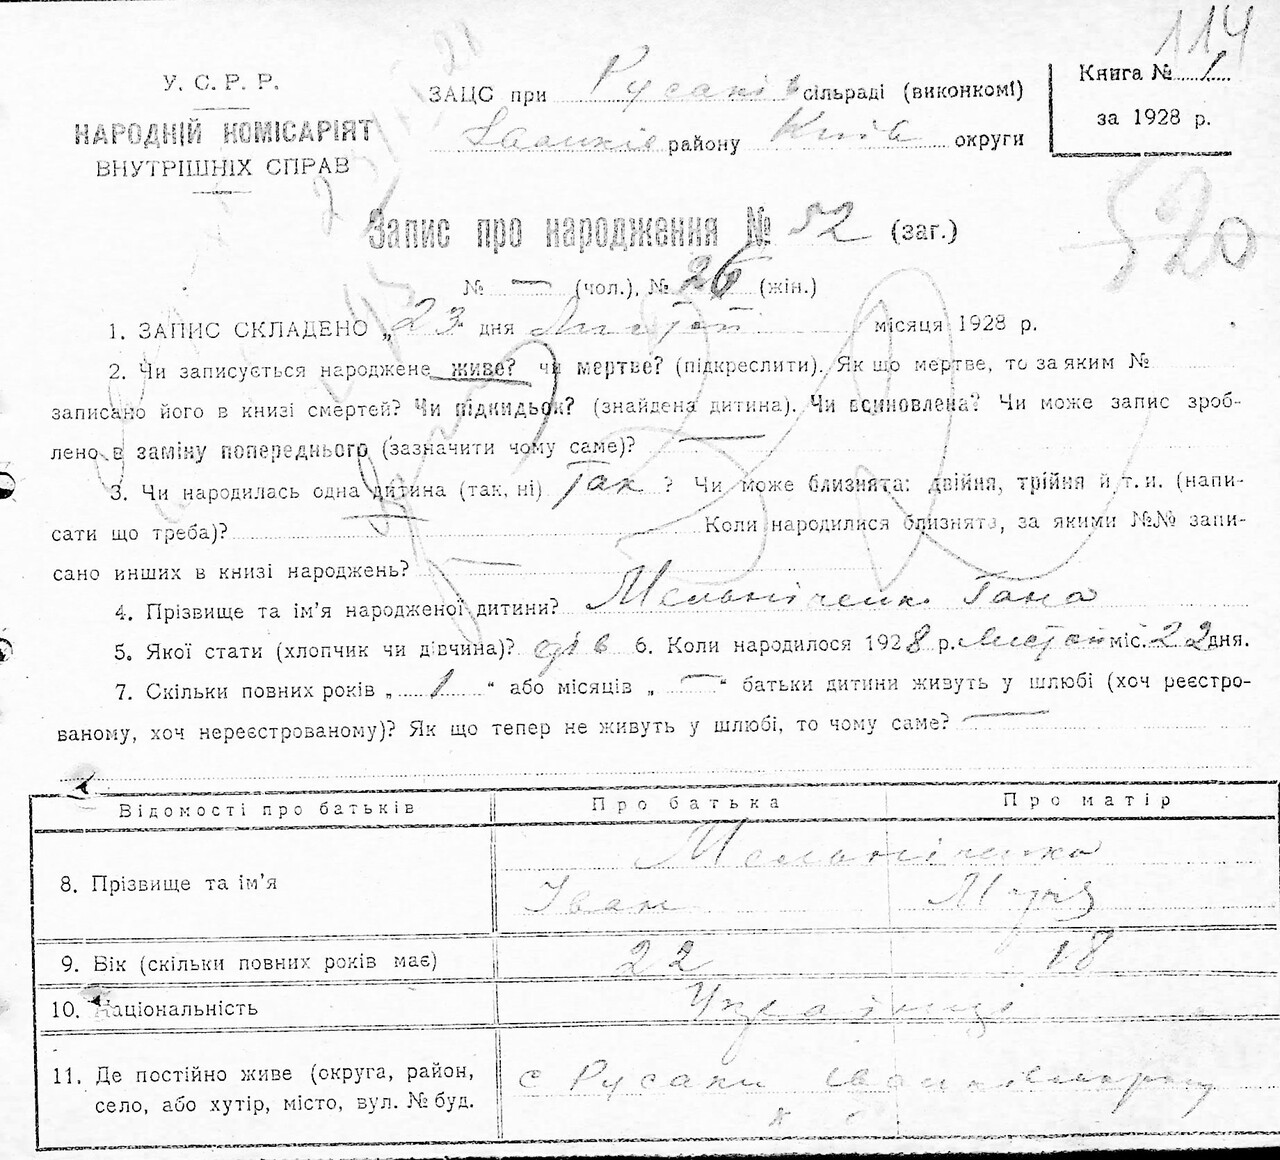 114
У. С. Р. Р.
НАРОДНІЙ КОМІСАРІЯТ
ВНУТРІШНІХ СПРАВ
ЗАЦС при Русаків сільраді (виконкомі)
Іванків району Київ округи
Книга № 1
за 1928 р.
520
Запис про народження № 52 (заг.)
№ — (чол.), № 26 (жін.)
1. ЗАПИС СКЛАДЕНО „23 дня Листоп місяця 1928 р.
2. Чи записується народжене живе? чи мертве? (підкреслити). Як що мертве, то за яким №
записано його в книзі смертей? Чи підкидьок? (знайдена дитина). Чи всиновлена? Чи може запис зроб-
лено в заміну попереднього (зазначити чому саме)? —
3. Чи народилась одна дитина (так, ні) Так ? Чи може близнята: двійня, трійня й т. и. (напи-
сати що треба)? Коли народилися близнята, за якими №№ запи-
сано инших в книзі народжень? —
4. Прізвище та ім’я народженої дитини? Мельніченко Гана
5. Якої стати (хлопчик чи дівчина)? дів 6. Коли народилося 1928 р. Листоп міс. 22 дня.
7. Скільки повних років „ 1 “ або місяців „ — “ батьки дитини живуть у шлюбі (хоч реєстро-
ваному, хоч нереєстрованому)? Як що тепер не живуть у шлюбі, то чому саме? —
Відомості про батьків Про батька Про матір
Мельніченко
8. Прізвище та ім’я
Іван Марія
9. Вік (скільки повних років має) 22 18
10. Національність Українці
11. Де постійно живе (округа, район, с Русаки
село, або хутір, місто, вул. № буд.